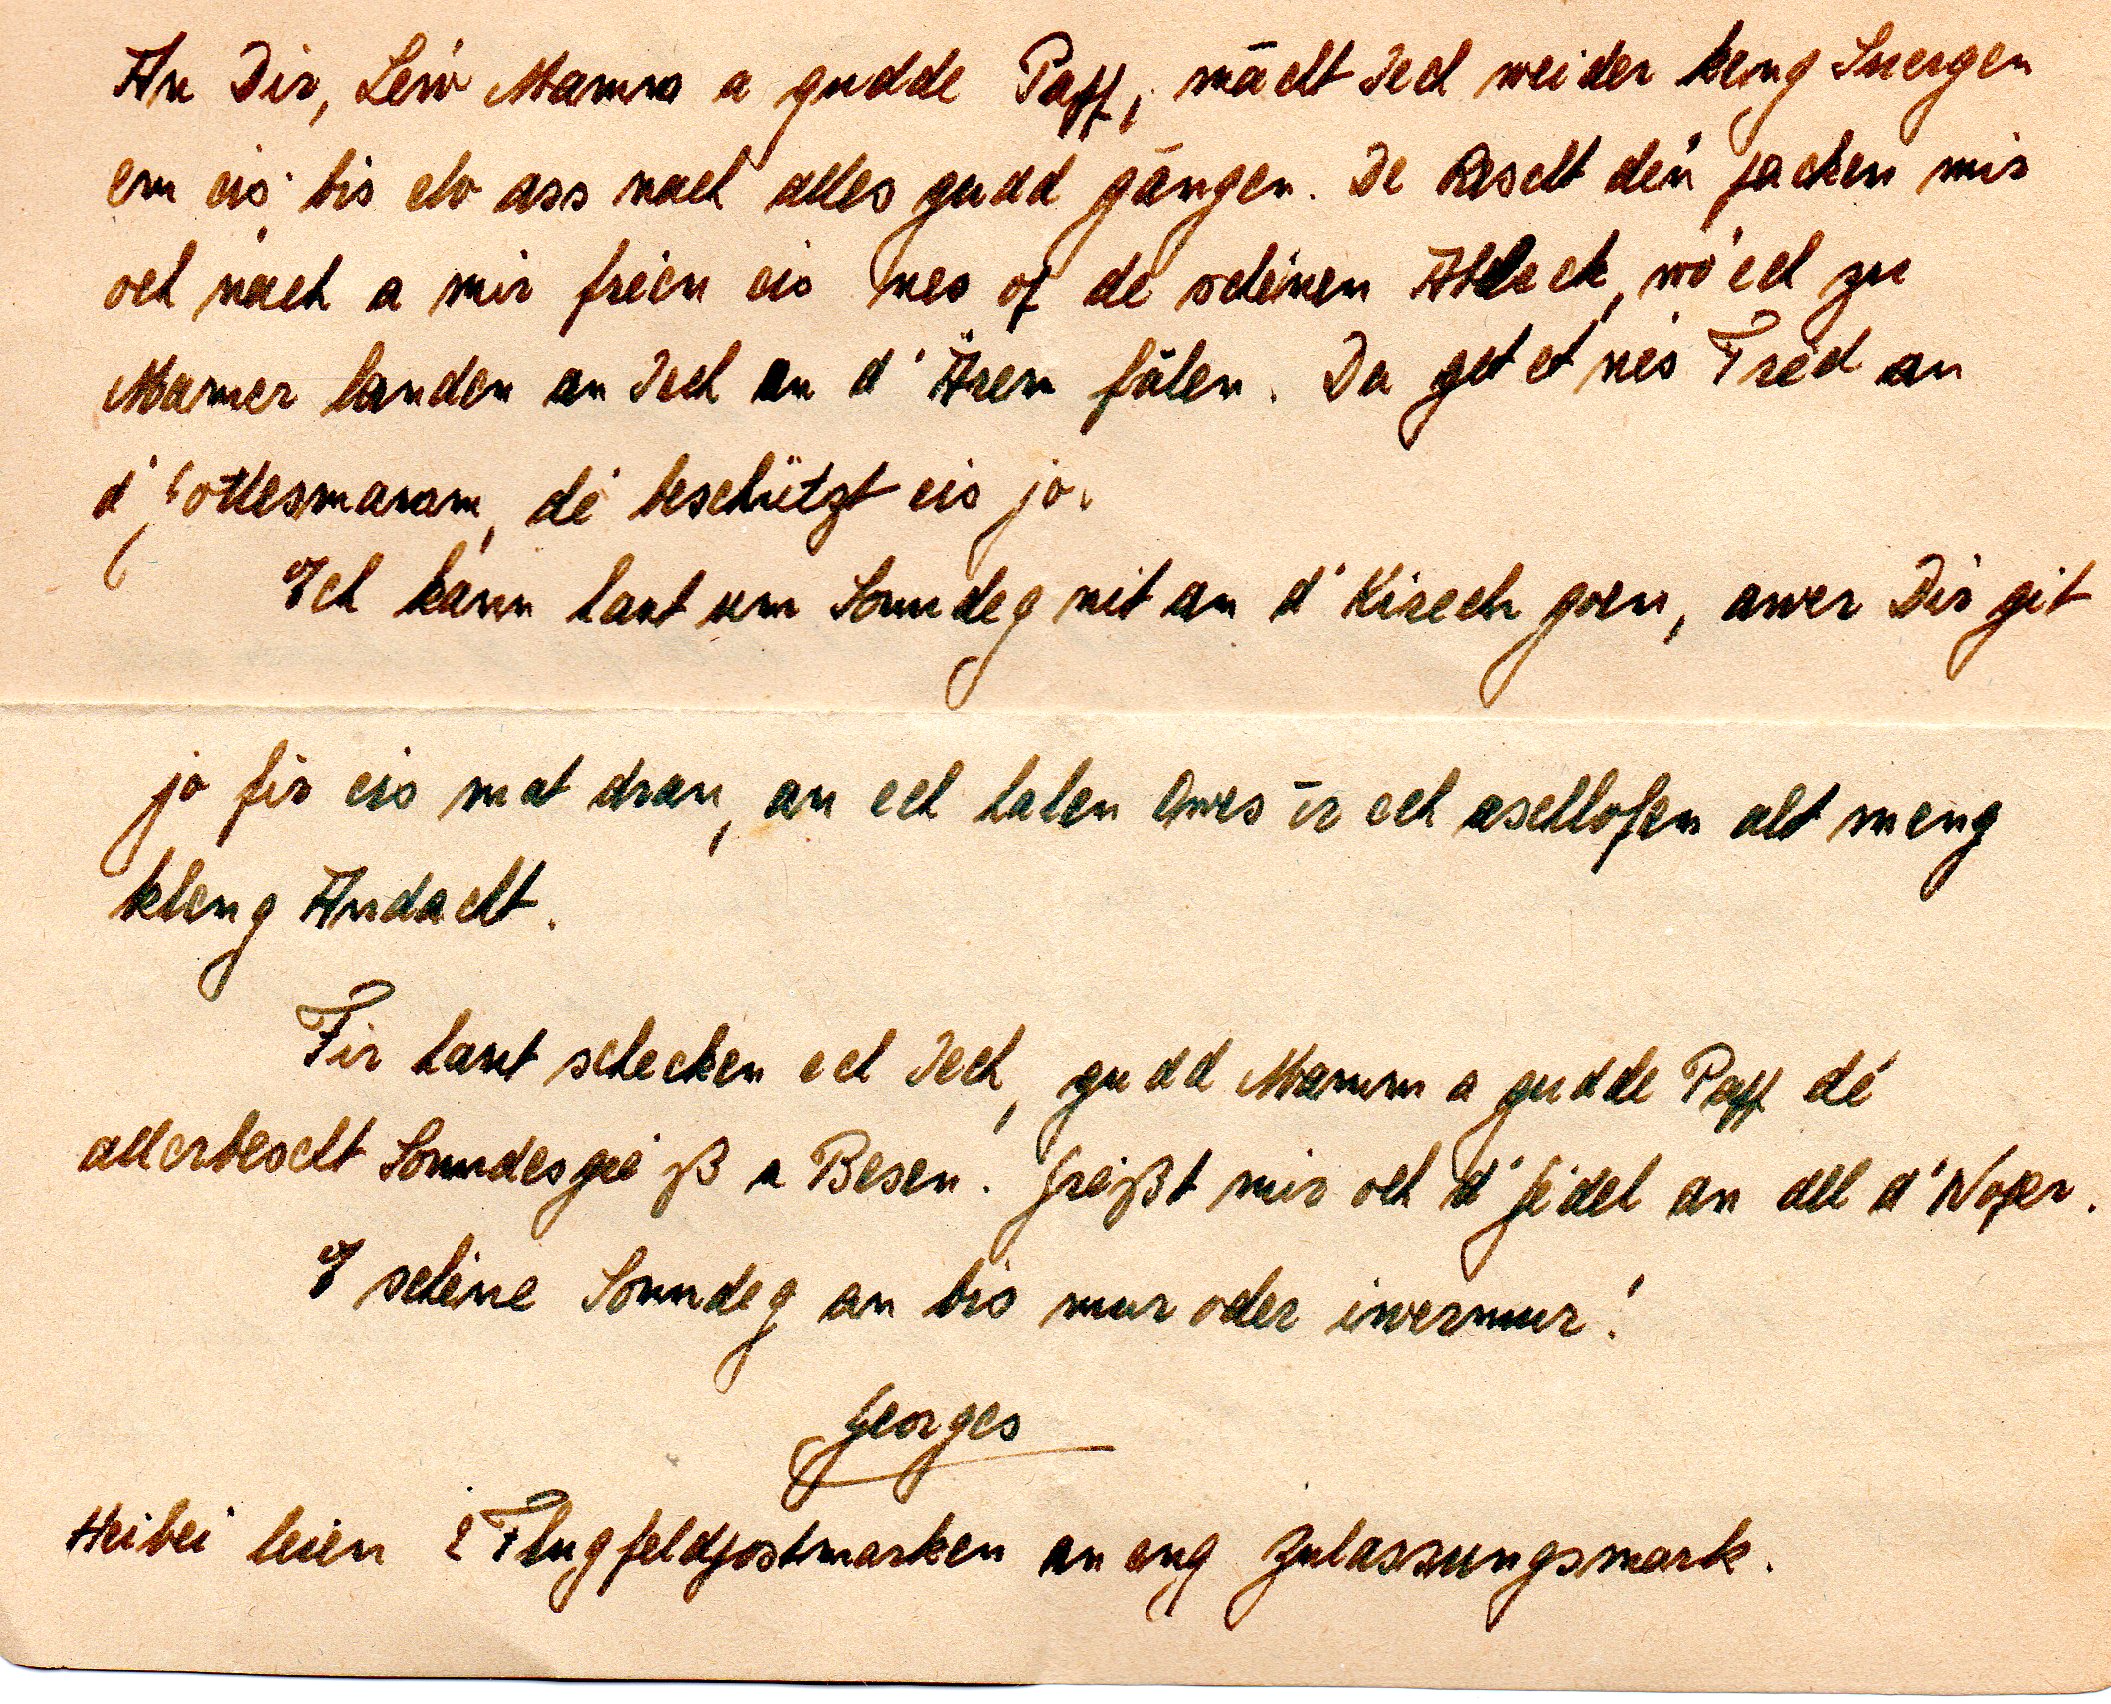 An Dir, Léiw Mamm a gudde Papp, mächt Iech weider keng Suergen
em eis bis elo ass nach alles gudd gängen. De Rescht déń packen mir
och nach a mir freien eis nes op de schéinen Ableck, wó ech zu
Mamer landen an Iech an d'Ärem fälen. Da get et nés Fréd an
d'Gottesmamm, dé beschützt eis jo.
Ech kann haut um Sonndeg nit an d'Kirech goen, awer Dir git
jo fir eis mat dran, an ech halen Owes ir ech aschlofen alt meng
kleng Andacht.
Fir haut schecken ech Iech, gudd Mamm a gudde Papp dé
allerbescht Sonndesgréiß a Besen. Gréißt mir och d'Gédel an all d'Noper.
E schéine Sonndeg an bis mur oder iwermur!
Georges
Heibei leien 2 Flugfeldpostmarken an eng Zulassungsmark.